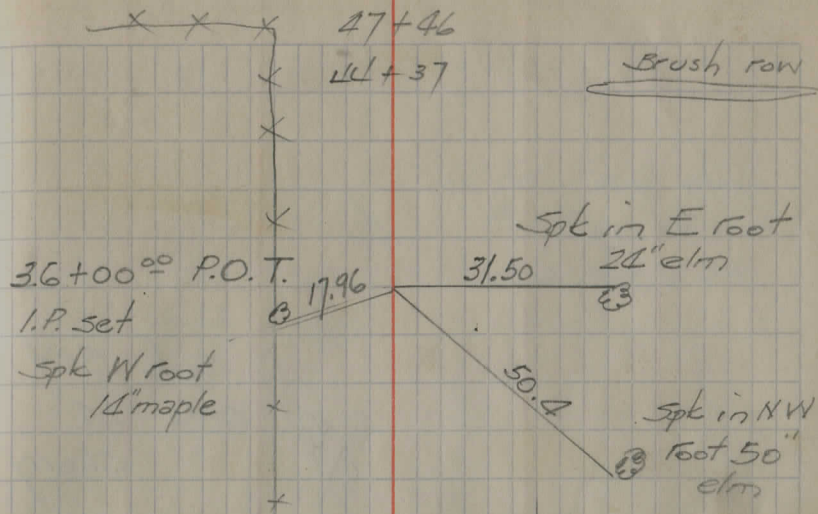 47+46
44+37
Brush row
Spk in E root
24" elm
36+00ºº P.O.T.
17.96
31.50
I.P. set
Spk W root
14" maple
50.4
Spk in NW
root 50"
elm